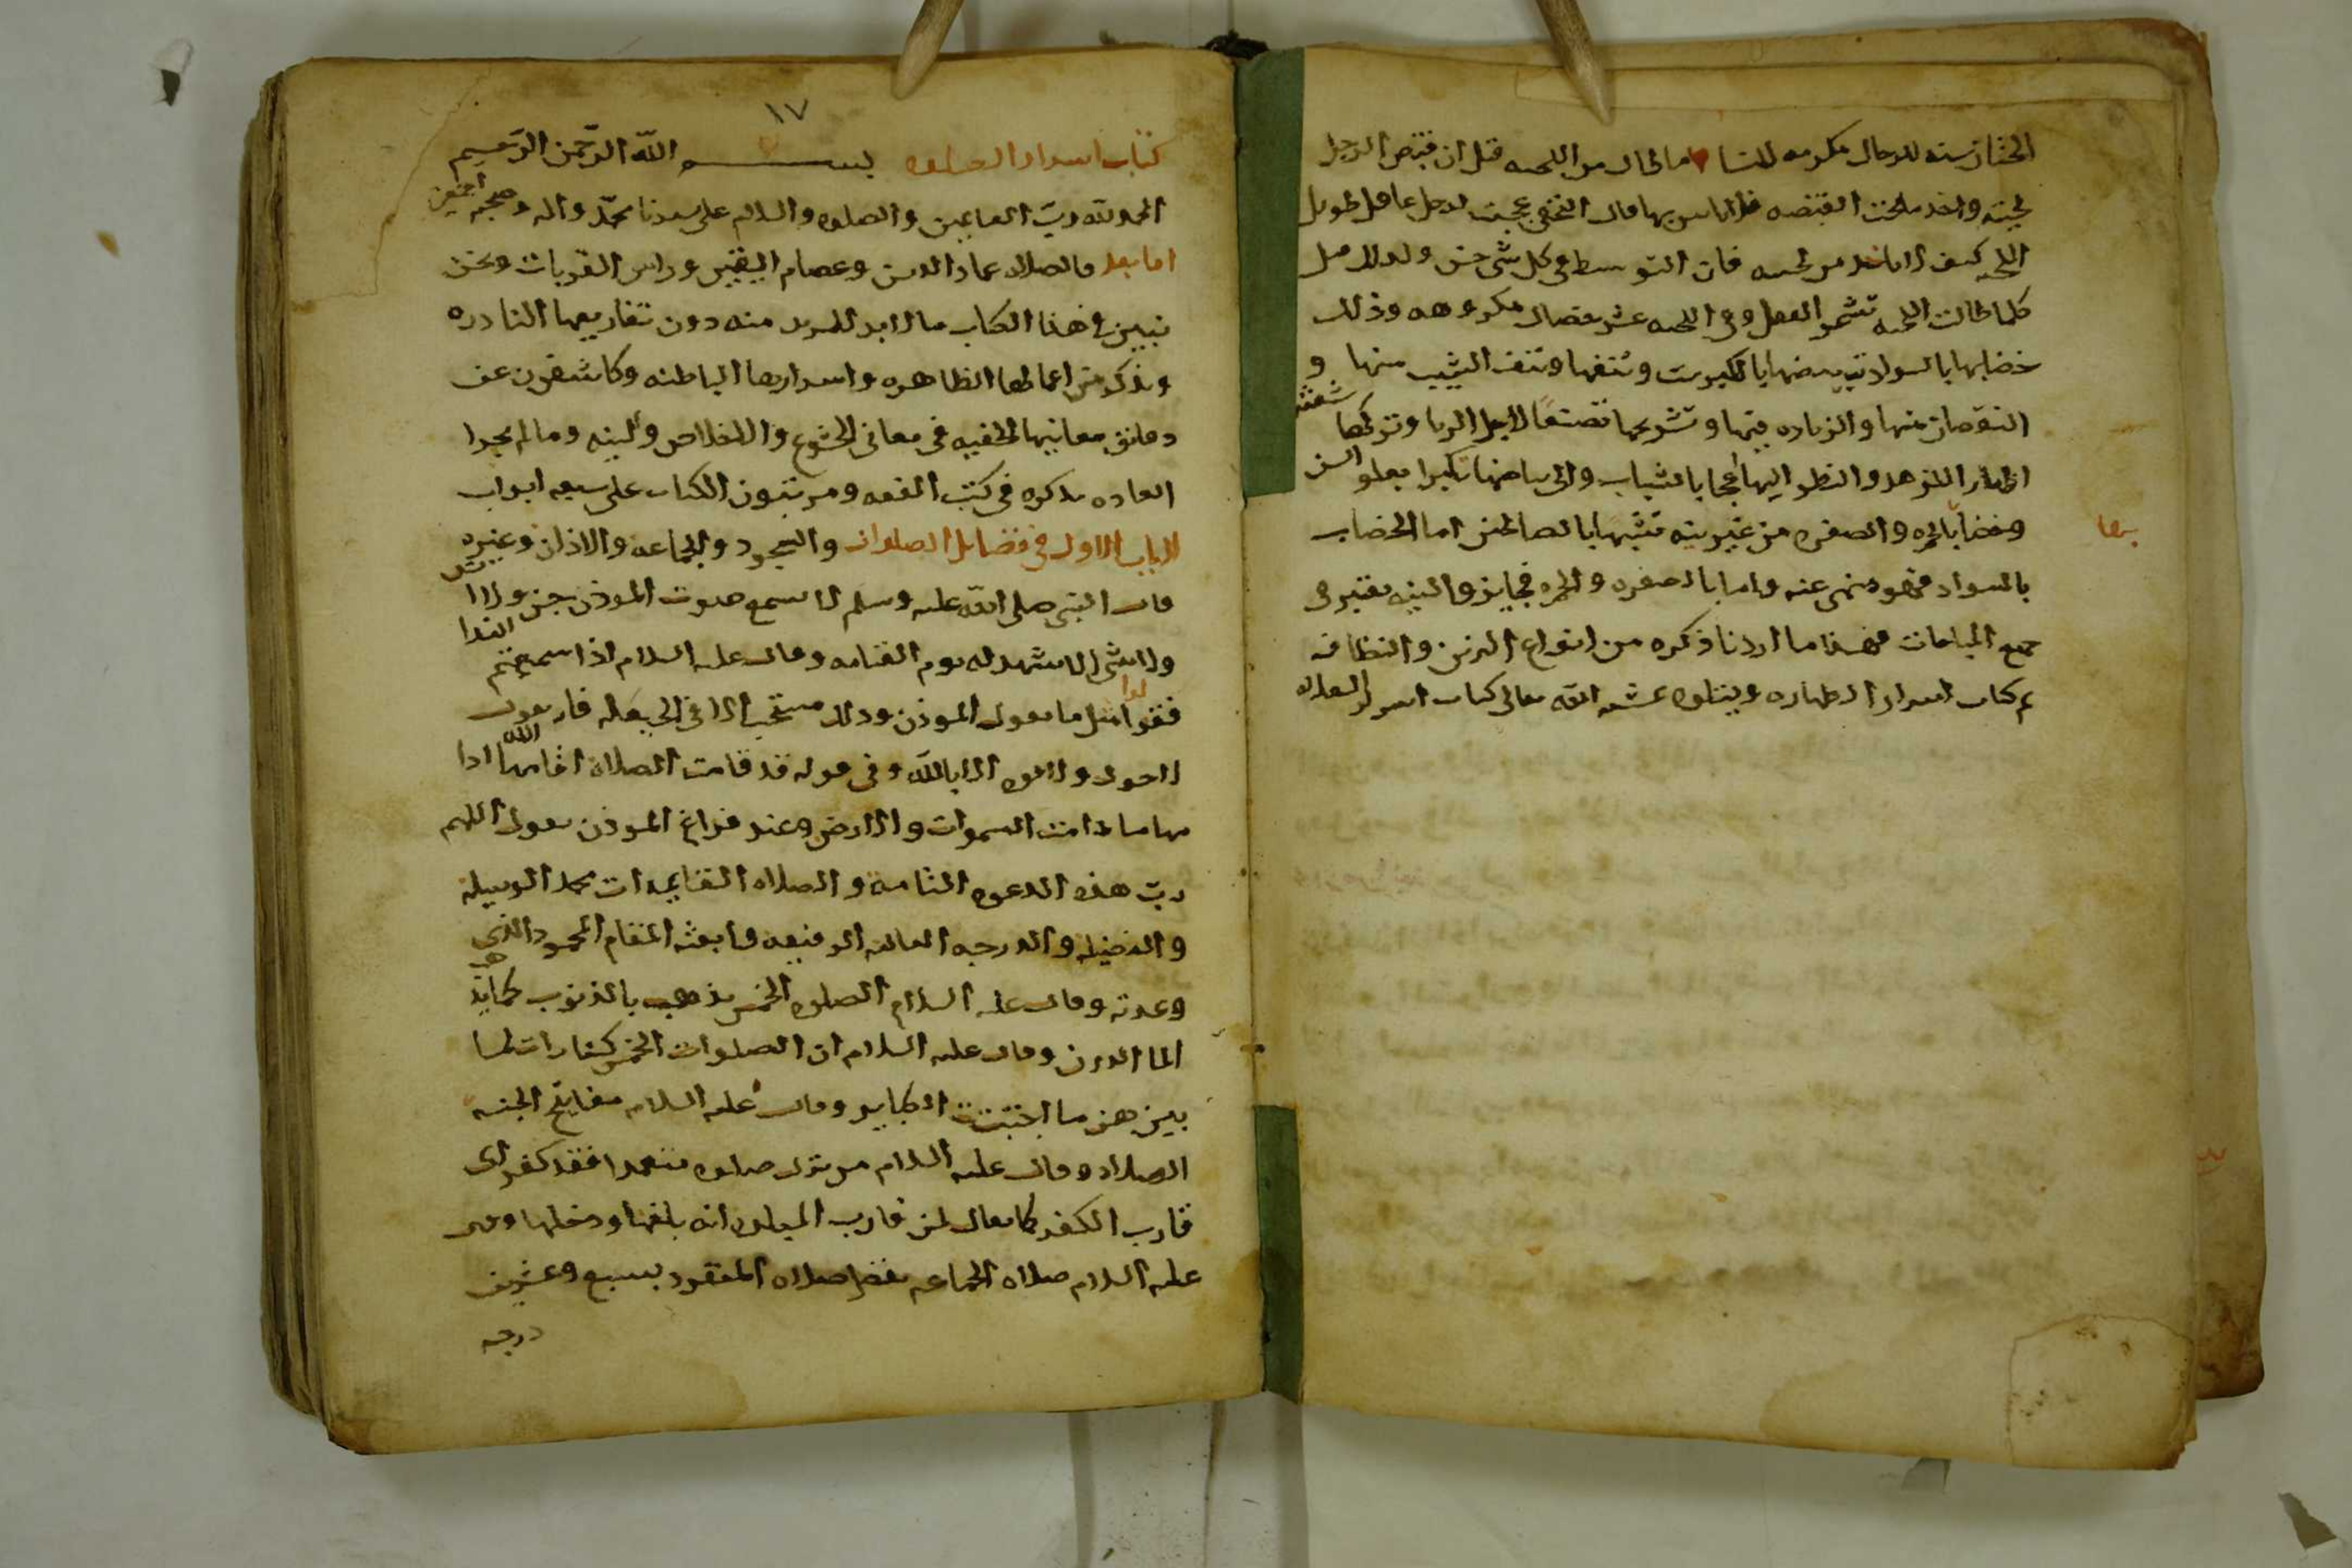 الختان سنه للرجال مكرمه للنسا ما طال من اللحيه قيل ان قبض الرجل
لحيته واخذ ما تحت القبضه فلا باس بها قال النخعي عجبت لرجل عاقل طويل
اللحيه كيف لا ياخذ من لحيته فان التوسط في كل شي حسن ولذلك قيل
كلما طالت اللحيه تشمر العقل وفي اللحيه عشر خصال مكروهه وذلك
خضابها بالسواد تبييضها بالكبريت ونتفها ونتف الشيب منها و
النقصان منها والزياده فيها وتشريحها تصنعا لاجل الريا وتركها شعثه
اظهارا للزهد والنظر اليها عجبا بالشباب والى بياضها تكبرا بعلو السن
وخضابها بالحمره والصفره من غير نيه تشبها بالصالحين اما الخضاب
بالسواد فهو منهي عنه واما بالصفره والحمره فجايز والنيه تعتبر في
جميع المباحات فهذا ما اردنا ذكره من انواع التزين والنظافه
تم كتاب اسرار الطهاره ويتلوه بمشيه الله تعالى كتاب اسرار الصلاه
١٧
كتاب اسرار الصلوه بسم الله الرحمن الرحيم
الحمد لله رب العالمين والصلوه والسلام على سيدنا محمد واله وصحبه اجمعين
اما بعد فالصلاه عماد الدين وعصام اليقين وراس القربات ونحن
نبين في هذا الكتاب ما لا بد للمريد منه دون تفاريعها النادره
ونذكر من اعمالها الظاهره واسرارها الباطنه وكاشفون عن
دقايق معانيها الخفيه في معاني الخشوع والاخلاص والنيه وما لم تجر
العاده بذكره في كتب الفقه ومرتبون الكتاب على سبعه ابواب
الباب الاول في فضايل الصلوات والسجود والجماعه والاذان وغيره
قال النبي صلى الله عليه وسلم لا يسمع صوت الموذن جن ولا انس
ولا شي الا شهد له يوم القيامه وقال عليه السلام اذا سمعتم الندا
فقولوا مثل ما يقول الموذن وذلك مستحب الا في الحيعله فان يقول
لا حول ولا قوه الا بالله وفي قوله قد قامت الصلاه اقامها الله وادا
مها ما دامت السموات والارض وعند فراغ الموذن يقول اللهم
رب هذه الدعوه التامه والصلاه القايمه ات محمد الوسيله
والفضيله والدرجه العاليه الرفيعه وابعثه المقام المحمود الذي
وعدته وقال عليه السلام الصلوه الخمس تذهب بالذنوب كما يذهب
الما الدرن وقال عليه السلام ان الصلوات الخمس كفارات لما
بينهن ما اجتنبت الكباير وقال عليه السلام مفاتيح الجنه
الصلاه وقال عليه السلام من ترك صلوه متعمدا فقد كفر اي
قارب الكفر كما يقال لمن قارب البلده انه بلغها ودخلها وقال
عليه السلام صلاه الجماعه تفضل صلاه المنفرد بسبع وعشرين
درجه